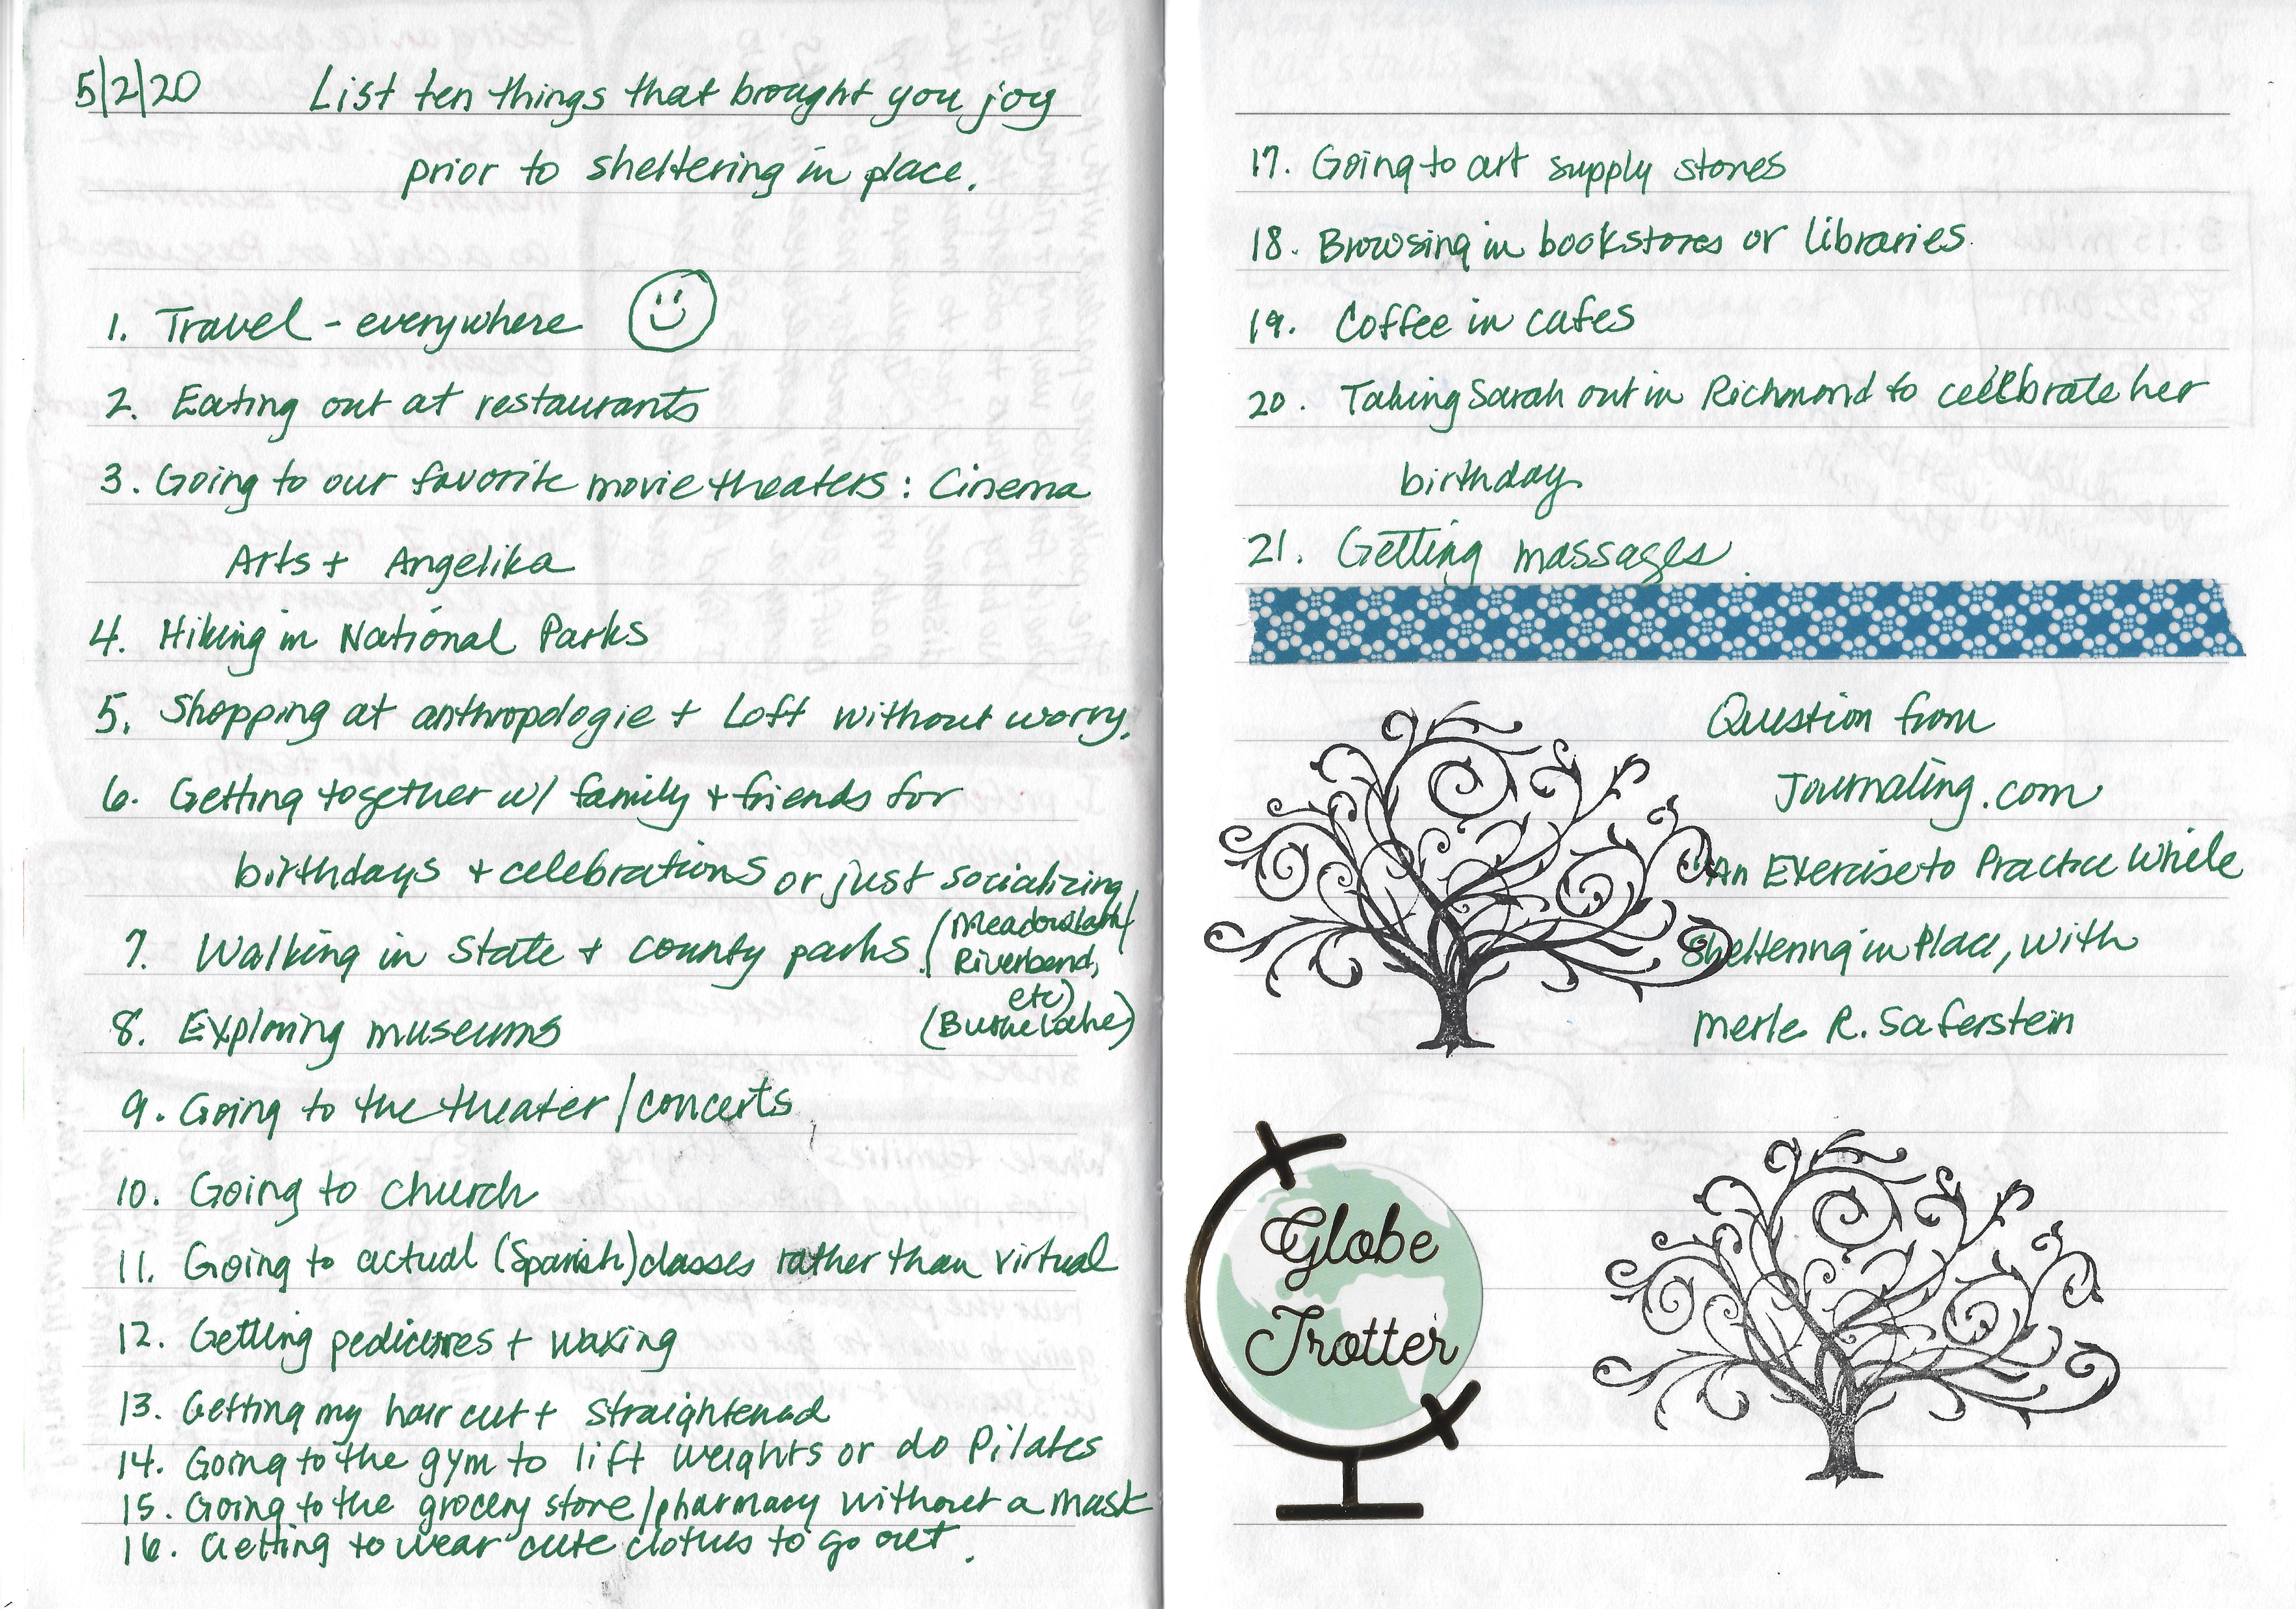 5/2/20 List ten things that brought you joy
prior to sheltering in place.
1. Travel - everywhere
2. Eating out at restaurants
3. Going to our favorite movie theaters: Cinema
Arts + Angelika
4. Hiking in National Parks
5. Shopping at anthropologie + Loft without worry.
6. Getting together w/ family + friends for
birthdays + celebrations or just socializing
7. Walking in State + county parks. (Meadowlark/
Riverbend,
etc)
(Burke Lake)
8. Exploring museums
9. Going to the theater/concerts
10. Going to church
11. Going to actual (Spanish) classes rather than virtual
12. Getting pedicures + waxing
13. Getting my hair cut + straightened
14. Going to the gym to lift weights or do Pilates
15. Going to the grocery store/pharmacy without a mask
16. Getting to wear cute clothes to go out.
17. Going to art supply stores
18. Browsing in bookstores or libraries
19. Coffee in cafes
20. Taking Sarah out in Richmond to celebrate her
birthday
21. Getting massages.
Question from
Journaling.com
"An Exercise to Practice While
Sheltering in Place, with
Merle R. Saferstein
Globe
Trotter